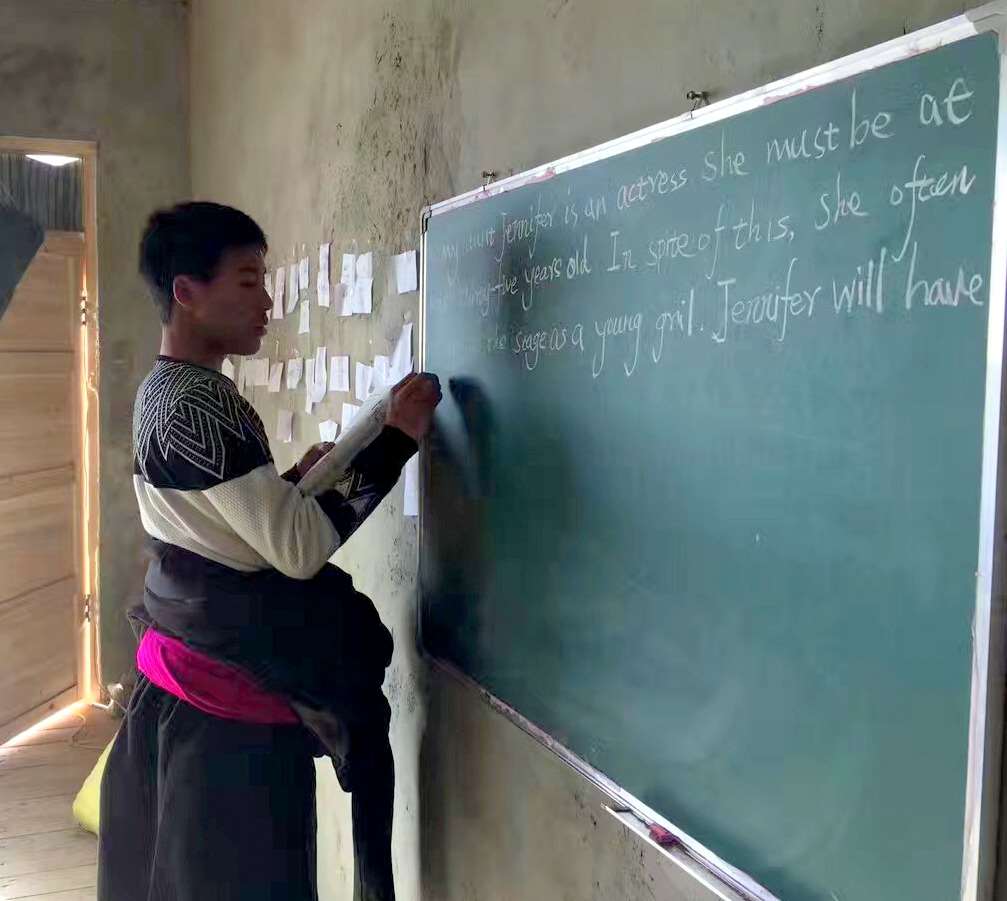 my aunt Jennifer is an actress She must be at
thirty-five years old In spite of this, She often
the stage as a young gril. Jennifer will have